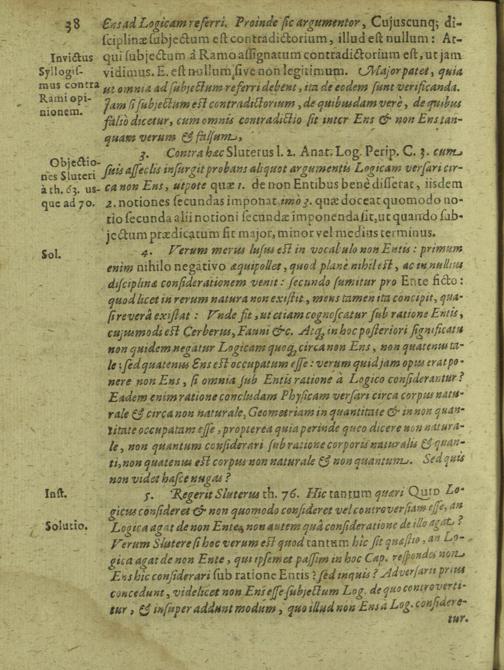 38 Eas ad Logicam referri. Proinde sic argumentor, Cujuscunq; di-
sciplinæ subjectum est contradictorium, illud est nullum: At-
Invictus qui subjectum à Ramo assignatum contradictorium est, ut jam
Syllogis- vidimus. E. est nullum, sive non legitimum. Major patet, quia
mus contra ut omnia ad subjectum referri debent, ita de eodem sunt verificanda.
Rami opi- Jam si subjectum est contradictorium, de quibusdam verè, de quibus
nionem. falsò dicetur, cum omnis contradictio sit inter Ens & non Ens, tan-
quam verum & falsum,
Objectio- 3. Contra hæc Sluterus l. 2. Anat. Log. Perip. C. 3. cum
nes Sluteri suis asseclis insurgit probans aliquot argumentis Logicam versari cir-
à th. 63. us- ca non Ens, utpote quæ 1. de non Entibus benè disserat, iisdem
que ad 70. 2. notiones secundas imponat, imò 3. quæ doceat quomodo no-
tio secunda alii notioni secundæ imponenda sit, ut quando sub-
jectum prædicatum sit major, minor vel medius terminus.
Sol. 4. Verum merus lusus est in vocabulo non Entis: primum
enim nihilo negativo æquipollet, quod planè nihil est, ac in nullius
disciplinæ considerationem venit: secundo sumitur pro Ente ficto:
quod licet in rerum natura non existit, mens tamen ita concipit, qua-
si reverâ existat: Unde fit, ut etiam cognoscatur sub ratione Entis,
cujusmodi est Cerberus, Fauni &c. Atq, in hoc posteriori significatu
non quidem negatur Logicam quoq, circa non Ens, non quatenus ta-
le; sed quatenus Ens est occupatum esse: verum quid jam opus erat po-
nere non Ens, si omnia sub Entis ratione à Logico considerantur?
Eadem enim ratione concludam Physicam versari circa corpus natu-
rale & circa non naturale, Geometriam in quantitate & in non quan-
titate occupatam esse, propterea quia perinde queo dicere non natura-
le, non quantum considerari sub ratione corporis naturalis & quan-
ti, non quatenus est corpus non naturale & non quantum. Sed quis
non videt hasce nugas?
Inst. 5. Regerit Sluterus th. 76. Hic tantum quæri Quid Lo-
gicus consideret & non quomodo consideret vel controversiam esse, an
Solutio. Logica agat de non Ente, non autem quâ consideratione de illo agat?
Verum Slutere si hoc verum est quod tantum hîc sit quæstio, an Lo-
gica agat de non Ente, qui ipsemet passim in hoc Cap. respondes non
Ens hic considerari sub ratione Entis? sed inquis? Adversarii prius
concedunt, videlicet non Ens esse subjectum Log. de quo controverti-
tur, & insuper addunt modum, quo illud non Ens à Log. considere-
tur.